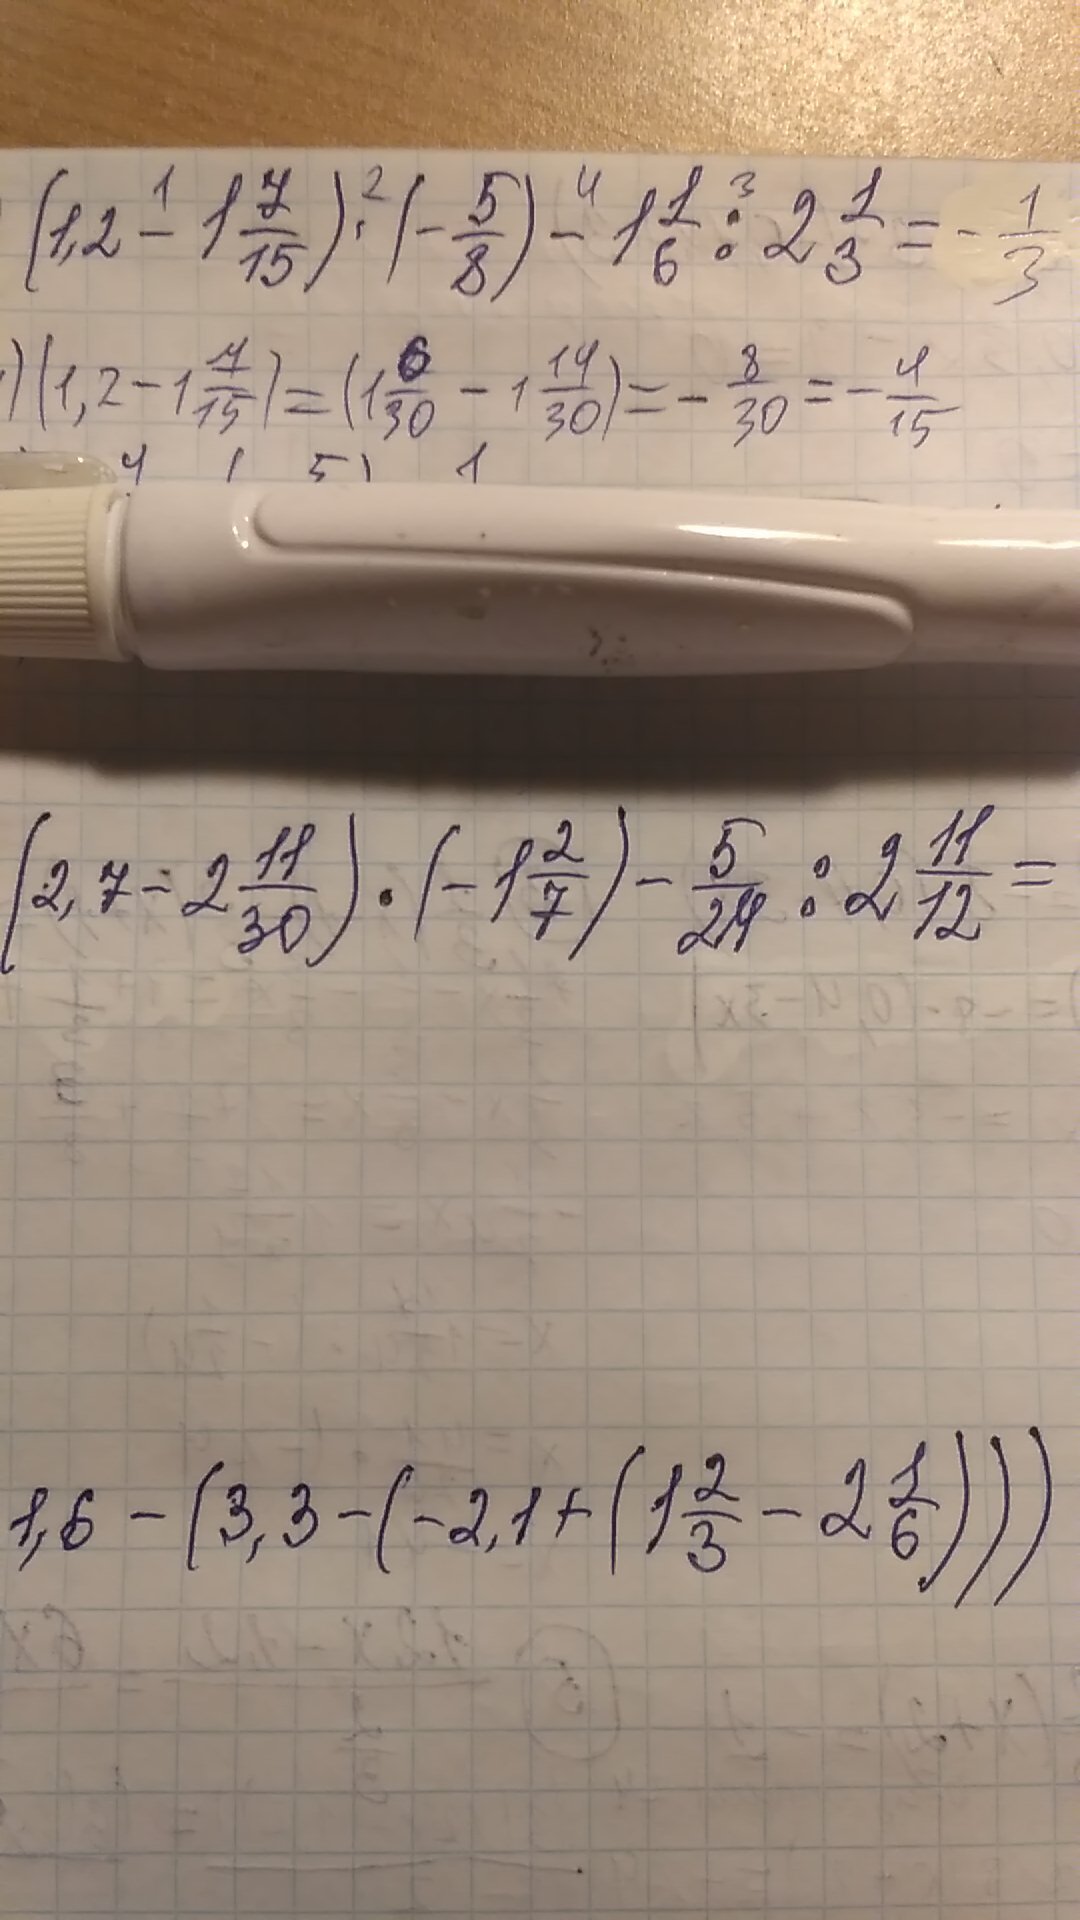 (1,2 - 1 7/15) · (- 5/8) - 1 1/6 : 2 1/3 = - 1/3
1 2 4 3
) (1,2 - 1 7/15) = (1 6/30 - 1 14/30) = - 8/30 = - 4/15
(2,7 - 2 11/30) · (-1 2/7) - 5/24 : 2 11/12 =
1,6 - (3,3 - (-2,1 + (1 2/3 - 2 1/6)))